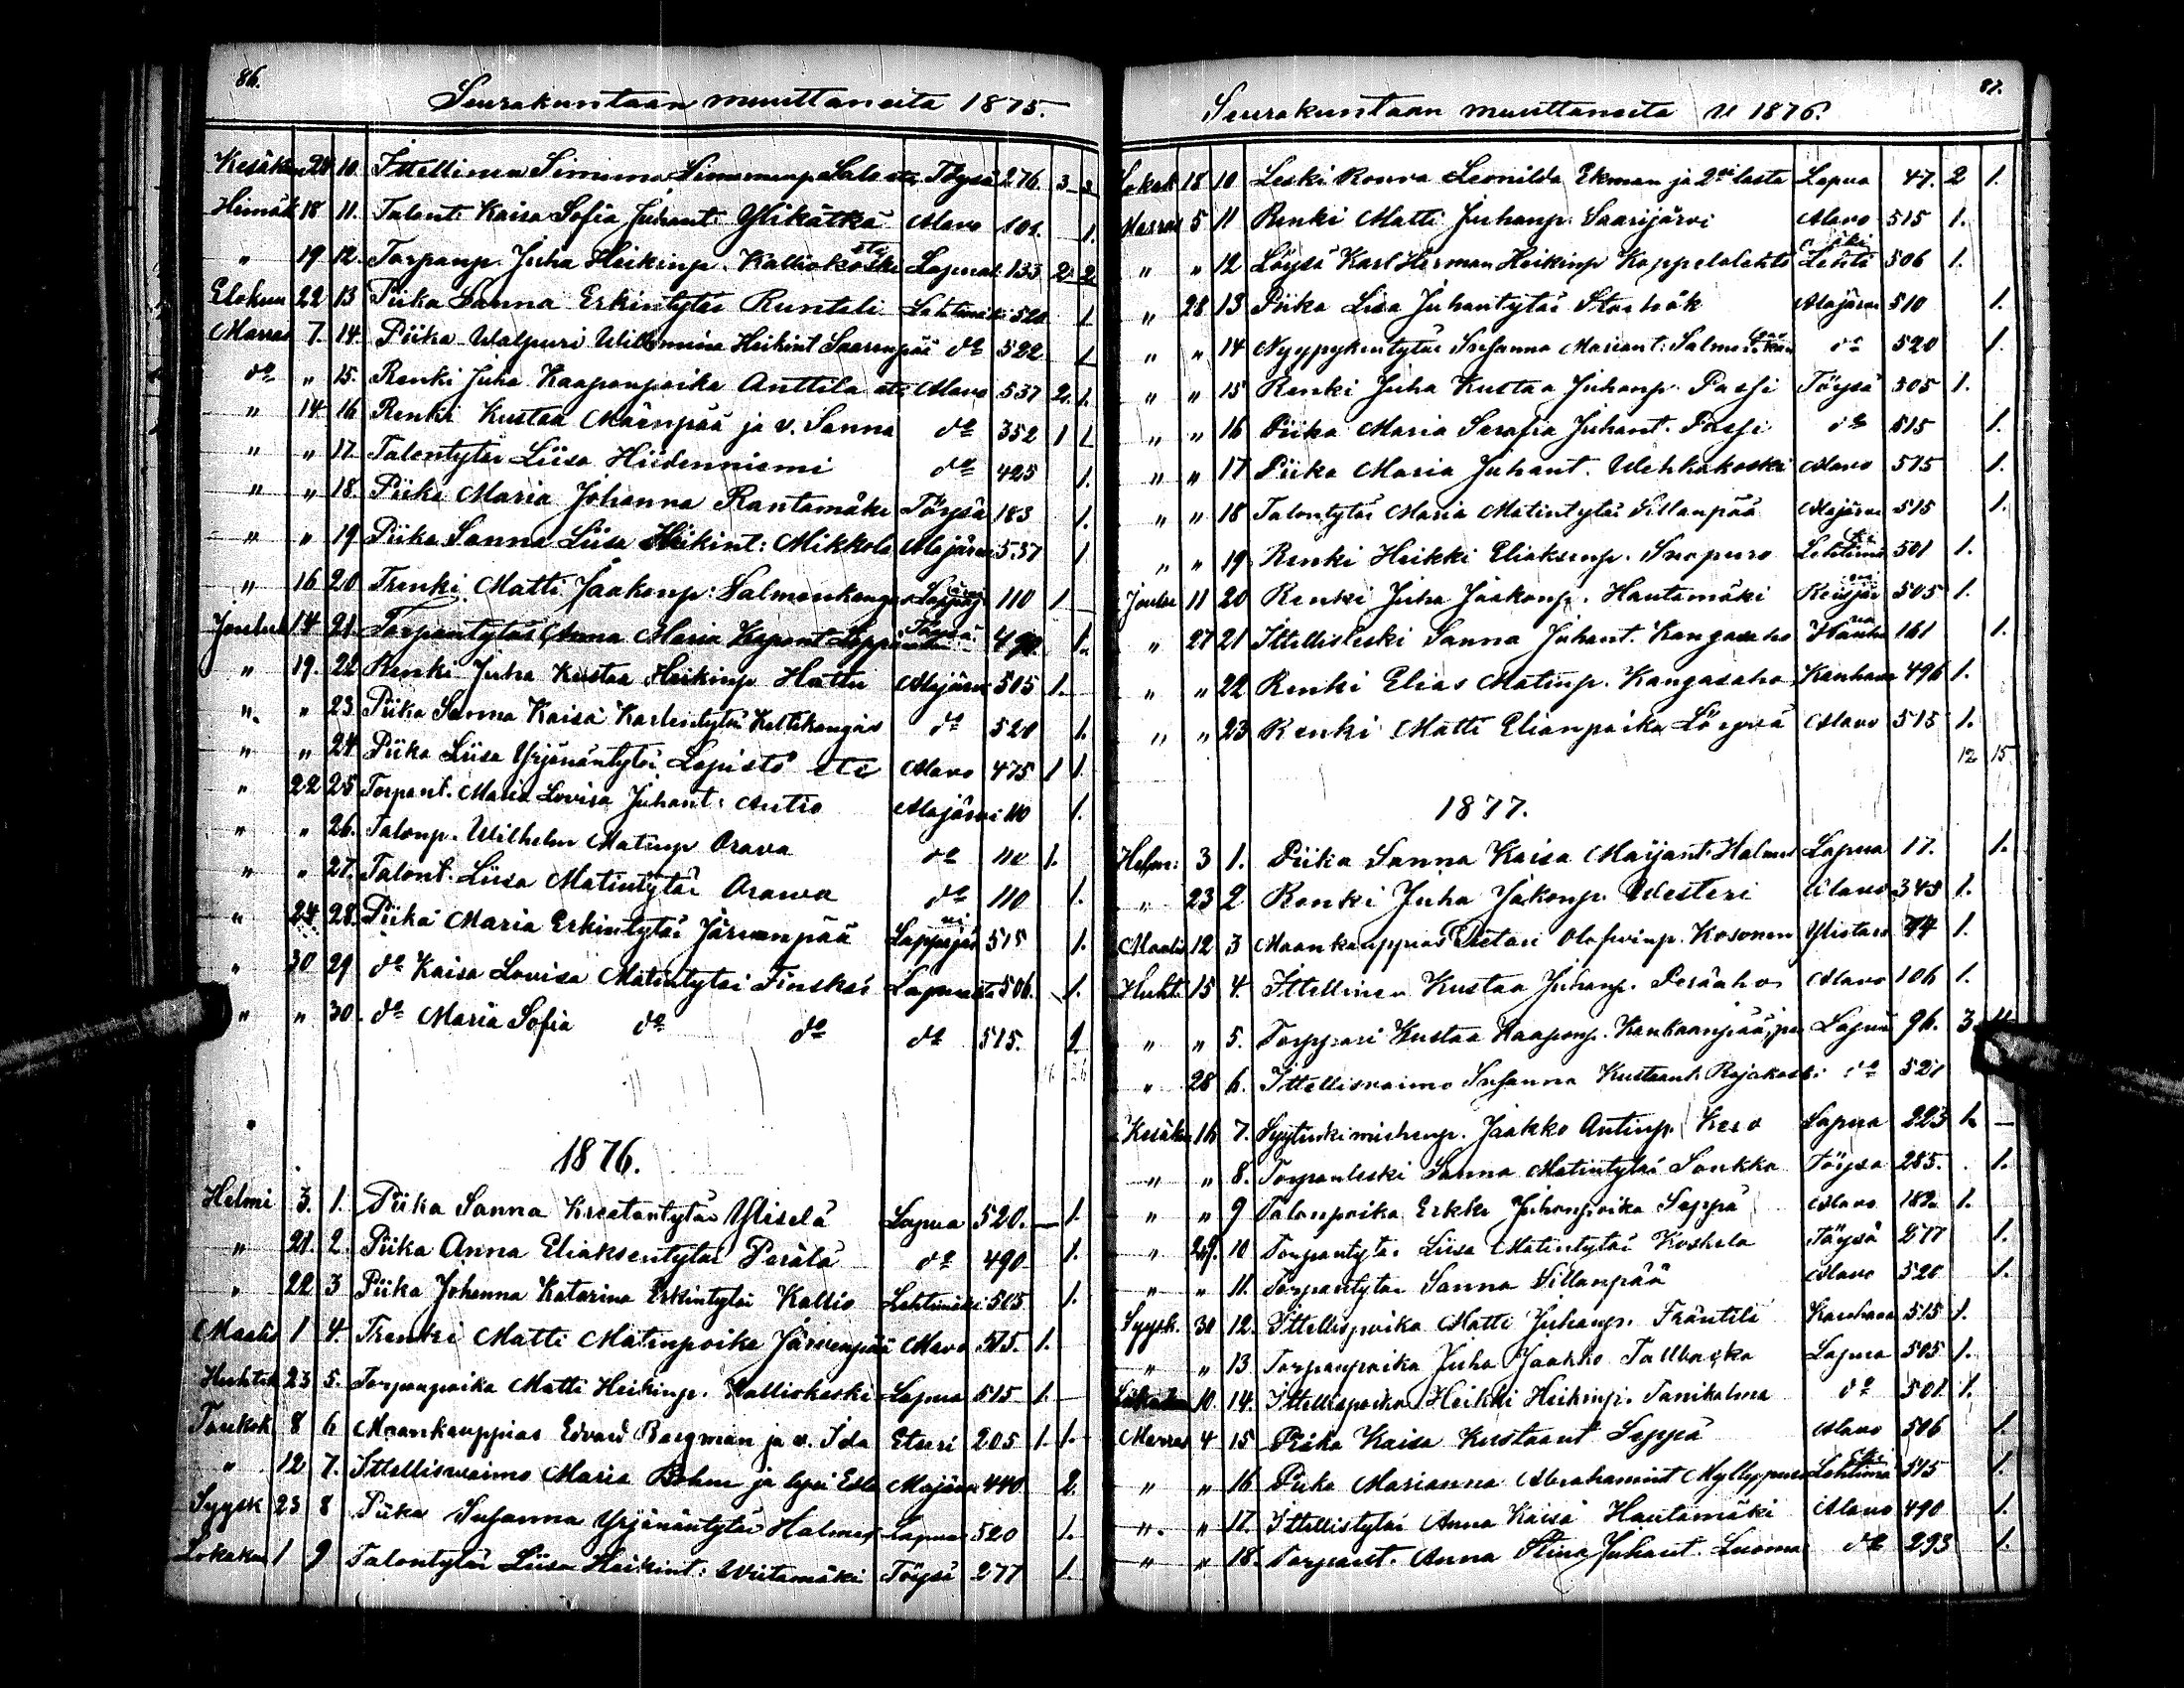 86.
Seurakuntaan muuttaneita 1875.
Kesäkuu 24 10. Ittellinen Simuna Simuunanp Salo etc Töysä 276. 3 3
Heinäk 18 11. Talont: Kaisa Sofia Juhant: Ylikätkä Alavo 101. 1.
" 19 12. Torpanp. Juha Heikinp. Kalliokoski etc Lapua 133 2. 2
Elokuu 22 13 Piika Sanna Erkintytär Runteli Lehtimäki 520 1
Marras 7. 14. Piika Walpuri Wilhelmiina Heikint Saarenpää do 522 1
do " 15. Renki Juha Kaaponpoika Anttila etc Alavo 537 2. 1.
" 14 16 Renki Kustaa Mäenpää ja v. Sanna do 352 1 1
" " 17. Talontytär Liisa Hiidenniemi do 425 1.
" " 18. Piika Maria Johanna Rantamäki Töysä 183 1.
" " 19 Piika Sanna Liisa Heikint: Mikkola Alajärvi 537 1
" 16 20 Trenki Matti Jaakonp: Salmenkangas Lappajärvi 110 1
Jouluk 14 21. Torpantytär Anna Maria Kapont Seppä 490 1.
" 19. 22 Renki Juha Kustaa Heikinp Hattu Alajärvi 505 1.
" " 23. Piika Sanna Kaisa Karlentytär Keltikangas do 520 1.
" " 24. Piika Liisa Yrjänäntytär Lapisto etc Alavo 475 1 1
" 22 25 Torpant. Maria Lovisa Juhant: Autio Alajärvi 110 1.
" " 26. Talonp. Wilhelm Matinp Orava do 110 1.
" " 27. Talont. Liisa Matintytär Orawa do 110 1.
" 24 28. Piika Maria Erkintytär Järvenpää Lappajärvi 515 1.
" 30 29 do Kaisa Lovisa Matintytär Finskas Lapua 506. 1.
" " 30. do Maria Sofia do do do 515. 1.
1876.
Helmi 3. 1. Piika Sanna Kreetantytär Yliselä Lapua 520. 1.
" 21. 2. Piika Anna Eliaksentytär Perälä do 490 1.
" 22 3 Piika Johanna Katarina Erkintytär Kallio Lehtimäki 505 1.
Maalis 1 4. Trenki Matti Matinpoika Järvenpää Alavo 515. 1.
Huhtik 23 5. Torpanpoika Matti Heikinp. Kalliokoski Lapua 515 1.
Toukok 8 6 Maankauppias Edvard Bergman ja v. Ida Etseri 205 1. 1.
" 12 7. Ittellisvaimo Maria Bohm ja lapsi Alajärvi 440 2.
Syysk 23 8 Piika Susanna Yrjänäntytär Halmes Lapua 520 1.
Lokakuu 1 9 Talontytär Liisa Heikint: Wiitamäki Töysä 277 1
87.
Seurakuntaan muuttaneita v 1876.
Lokak 18 10 Leski Rouva Leonilda Ekman ja 2si lasta Lapua 47. 2 1.
Marras 5 11 Renki Matti Juhanp. Saarijärvi Alavo 515 1.
" " 12 Löysä Karl Herman Heikinp Koppelolehto Lehtimäki 506 1.
" 28 13 Piika Lisa Juhantytär Storhök Alajärvi 510 1.
" " 14 Nyypykintytär Susanna Mariant: do 520 1.
" " 15 Renki Juha Kustaa Juhanp. Passi Töysä 505 1.
" " 16 Piika Maria Serafia Juhant. Passi do 515 1.
" " 17 Piika Maria Juhant. Uhkakoski Alavo 515 1.
" " 18 Talontytär Maria Matintytär Sillanpää Alajärvi 515 1.
" " 19 Renki Heikki Eliaksenp. Snopuro Lehtimäki 501 1.
Joulu 11 20 Renki Juha Jaakonp. Hautamäki 505 1.
" 27 21 Ittellisleski Sanna Juhant. Kangasaho 161 1.
" " 22 Renki Elias Matinp. Kangasaho Kauhava 496 1.
" " 23 Renki Matti Elianpoika Löysä Alavo 515 1.
12 15
1877.
Helm: 3 1. Piika Sanna Kaisa Maijant: Halmes Lapua 17. 1.
" 23 2 Renki Juha Jakonp. Westeri Alavo 345 1.
Maalis 12 3 Maankauppias Petari Olofwinp. Kosonen Ylistaro 44 1.
Huhti 15 4. Ittellinen Kustaa Juhanp. Peräaho Alavo 106 1.
" " 5. Torppari Kustaa Kaaponp. Kankaanpää, Lapua 96. 3.
" 28 6. Ittellisvaimo Susanna Kustaant. Rajakoski do 521
Kesäkuu 16 7. Jaakko Antinp. Kero Lapua 223 1. –
" " 8. Torpanleski Sanna Matintytär Sonkka Töysä 285. 1.
" " 9 Talonpoika Erkki Juhanpoika Seppä Alavo 182 1.
" 24. 10 Torpantytär Liisa Matintytär Koskela Töysä 277 1.
" " 11. Torpantytär Sanna Sillanpää Alavo 520 1.
Syysk. 30 12. Ittellispoika Matti Juhanp. Fräntilä Kauhava 515 1.
" " 13 Torpanpoika Juha Jaakko Tallbacka Lapua 505 1.
Lokakuu 10. 14. Ittellispoika Heikki Heikinp. Tanikulma do 501 1.
Marras 4 15 Piika Kaisa Kustaant Seppä Alavo 506 1.
" " 16 Piika Marianna Abrahamint Myllypuro Lehtimäki 515 1.
" " 17. Ittellistytär Anna Kaisa Hautamäki Alavo 490 1.
" " 18. Torpant. Anna Stina Juhant. Luoma do 293 1.